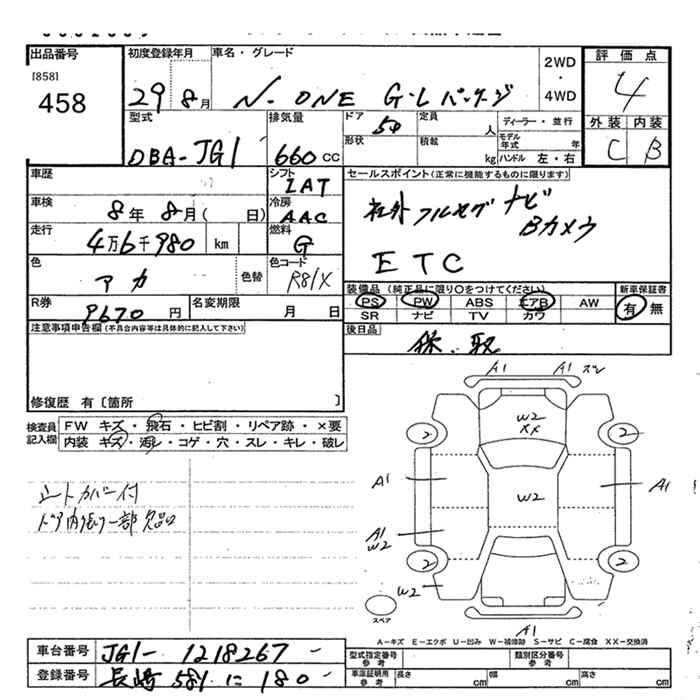 出品番号
[858]
458
初度登録年月
29 8月
車名・グレード
N-ONE G・Lパッケージ
2WD
・
4WD
評価点
4
外装 内装
C B
型式
DBA-JG1
排気量
660cc
ドア 5D
形状
定員 人
積載 kg
ディーラー・並行
モデル年式 年
ハンドル 左・右
車歴
シフト
IAT
セールスポイント(正常に機能するものに限ります)
社外 フルセグ ナビ
Bカメラ
ETC
車検
8年 8月( 日)
冷房
AAC
走行
4万6千980 km
燃料
G
色
アカ
色替
色コード
R81X
装備品 (純正品に限り○をつけてください)
PS PW ABS エアB AW
SR ナビ TV カワ
新車保証書
有 無
R券
9670円
名変期限 月 日
後日品
保、取
注意事項申告欄(不具合内容等は具体的に記入して下さい)
修復歴 有〔箇所 〕
検査員記入欄
FW キズ・飛石・ヒビ割・リペア跡・×要
内装 キズ・汚レ・コゲ・穴・スレ・キレ・破レ
シートカバー付
ドア内張り一部欠品
A1 A1 スレ
W2
XX
2 2
A1 W2 A1
A1
W2
2 2
W2
スペア
A1
A-キズ E-エクボ U-凹み W-補修跡 S-サビ C-腐食 XX-交換済
車台番号
JG1-1218267
登録番号
長崎 581 に 180
型式指定番号
参考
類別区分番号
参考
車庫証明用
参考
長さ cm 幅 cm 高さ cm